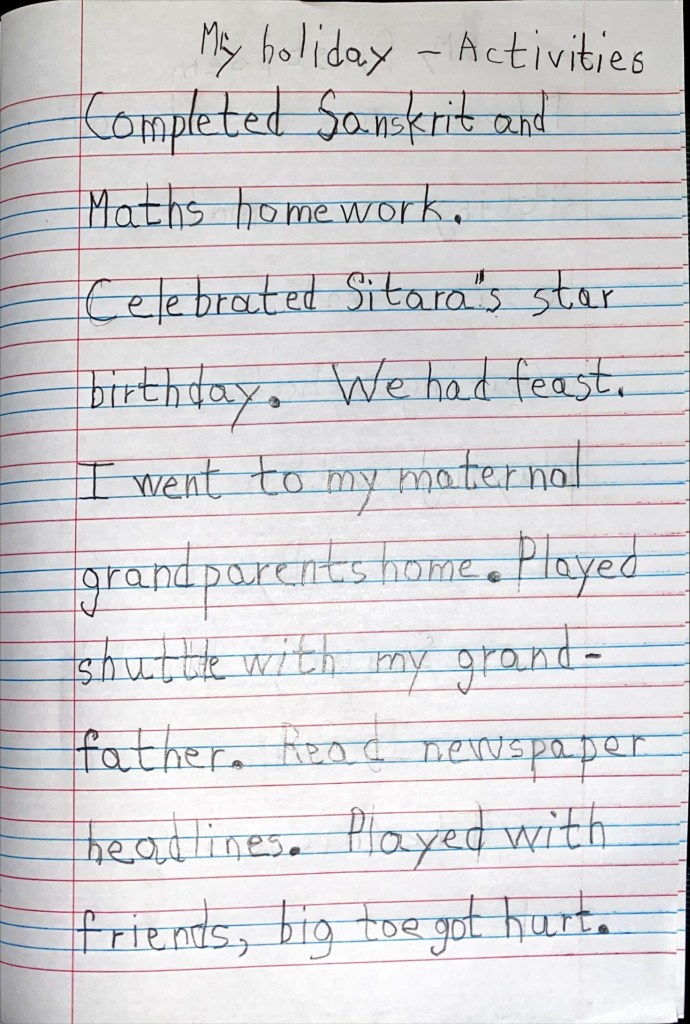 My holiday - Activities
Completed Sanskrit and
Maths homework.
Celebrated Sitara"s star
birthday. We had feast.
I went to my maternal
grandparents home. Played
shuttle with my grand-
father. Read newspaper
headlines. Played with
friends, big toe got hurt.